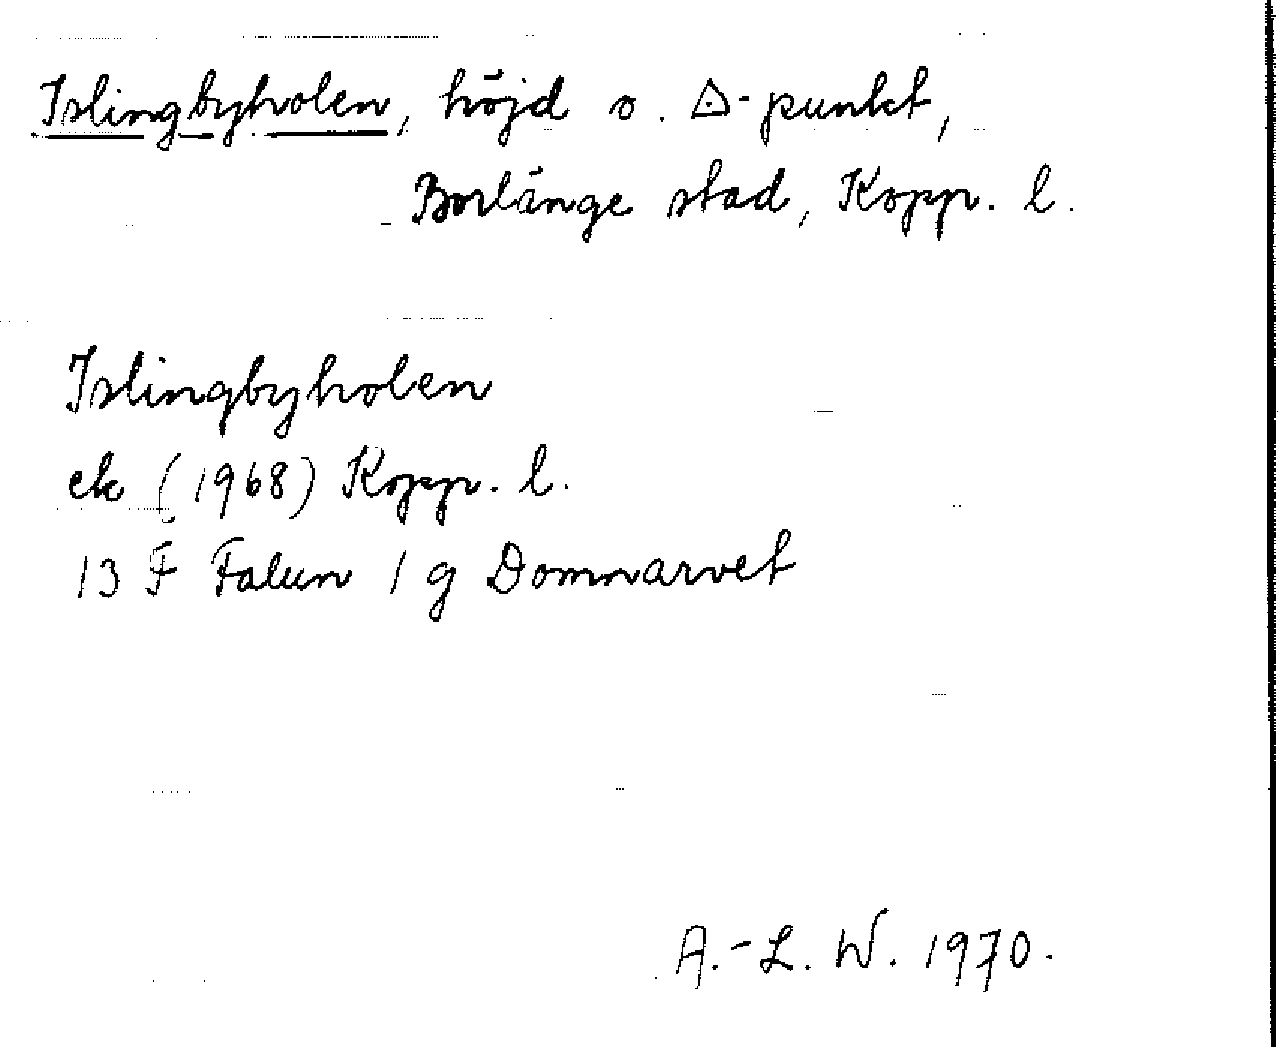 Islingbyholen, höjd o. △-punkt,
Borlänge stad, Kopp. l.
Islingbyholen
ek (1968) Kopp. l.
13 F Falun 1 g Domnarvet
A.-L. W. 1970.